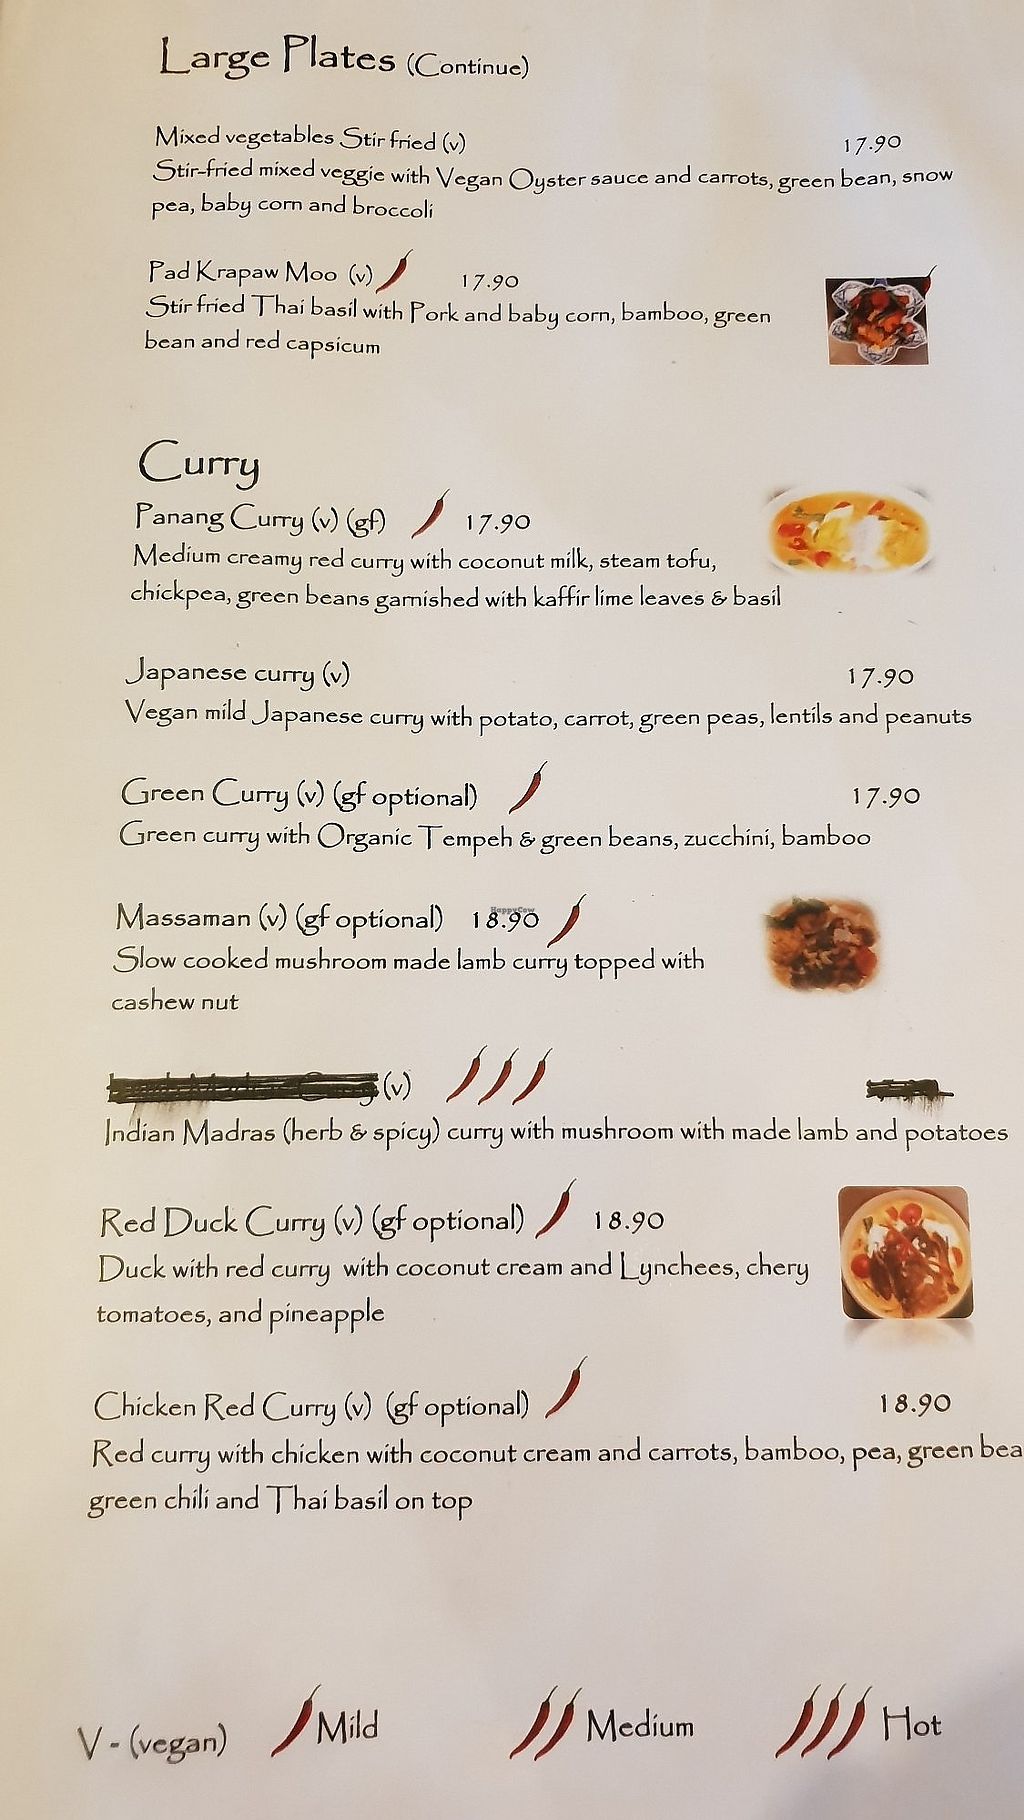 Large Plates (Continue)
Mixed vegetables Stir fried (v) 17.90
Stir-fried mixed veggie with Vegan Oyster sauce and carrots, green bean, snow
pea, baby corn and broccoli
Pad Krapaw Moo (v) 17.90
Stir fried Thai basil with Pork and baby corn, bamboo, green
bean and red capsicum
Curry
Panang Curry (v) (gf) 17.90
Medium creamy red curry with coconut milk, steam tofu,
chickpea, green beans garnished with kaffir lime leaves & basil
Japanese curry (v) 17.90
Vegan mild Japanese curry with potato, carrot, green peas, lentils and peanuts
Green Curry (v) (gf optional) 17.90
Green curry with Organic Tempeh & green beans, zucchini, bamboo
Massaman (v) (gf optional) 18.90
HappyCow
Slow cooked mushroom made lamb curry topped with
cashew nut
(v)
Indian Madras (herb & spicy) curry with mushroom with made lamb and potatoes
Red Duck Curry (v) (gf optional) 18.90
Duck with red curry with coconut cream and Lynchees, chery
tomatoes, and pineapple
Chicken Red Curry (v) (gf optional) 18.90
Red curry with chicken with coconut cream and carrots, bamboo, pea, green bea
green chili and Thai basil on top
V - (vegan) Mild Medium Hot